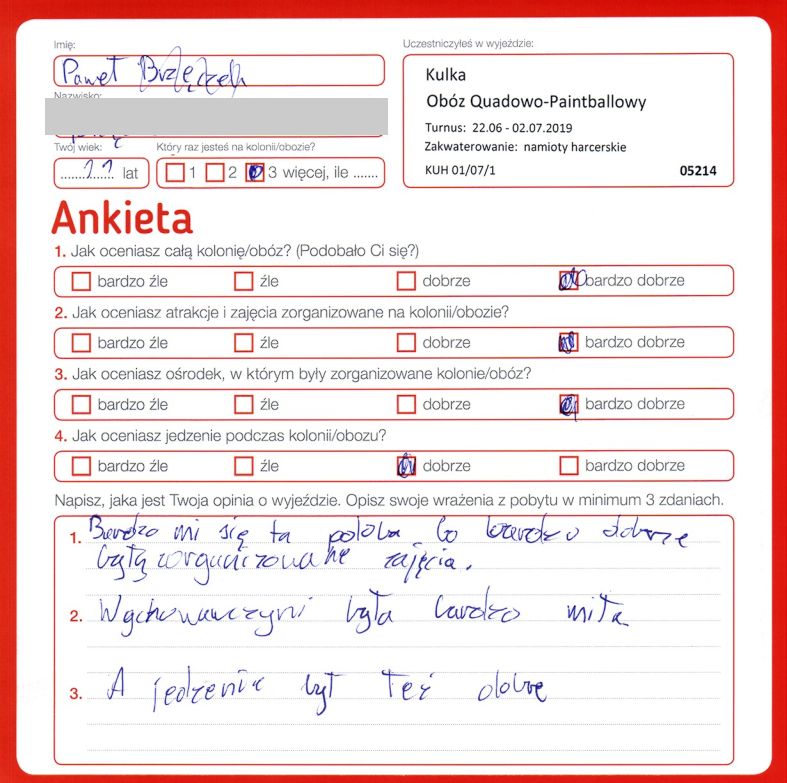 Imię:
Uczestniczyłeś w wyjeździe:
Paweł
Kulka
Obóz Quadowo-Paintballowy
Nazwisko:
Turnus: 22.06 - 02.07.2019
Zakwaterowanie: namioty harcerskie
KUH 01/07/1 05214
Twój wiek: Który raz jesteś na kolonii/obozie?
11 lat 1 2 3 więcej, ile .......
Ankieta
1. Jak oceniasz całą kolonię/obóz? (Podobało Ci się?)
bardzo źle źle dobrze bardzo dobrze
2. Jak oceniasz atrakcje i zajęcia zorganizowane na kolonii/obozie?
bardzo źle źle dobrze bardzo dobrze
3. Jak oceniasz ośrodek, w którym były zorganizowane kolonie/obóz?
bardzo źle źle dobrze bardzo dobrze
4. Jak oceniasz jedzenie podczas kolonii/obozu?
bardzo źle źle dobrze bardzo dobrze
Napisz, jaka jest Twoja opinia o wyjeździe. Opisz swoje wrażenia z pobytu w minimum 3 zdaniach.
1. Bardzo mi się ta bo bardzo dobrze
były zorganizowane zajęcia.
2. Wychowawczyni była bardzo miła
3. A jedzenie był też dobre